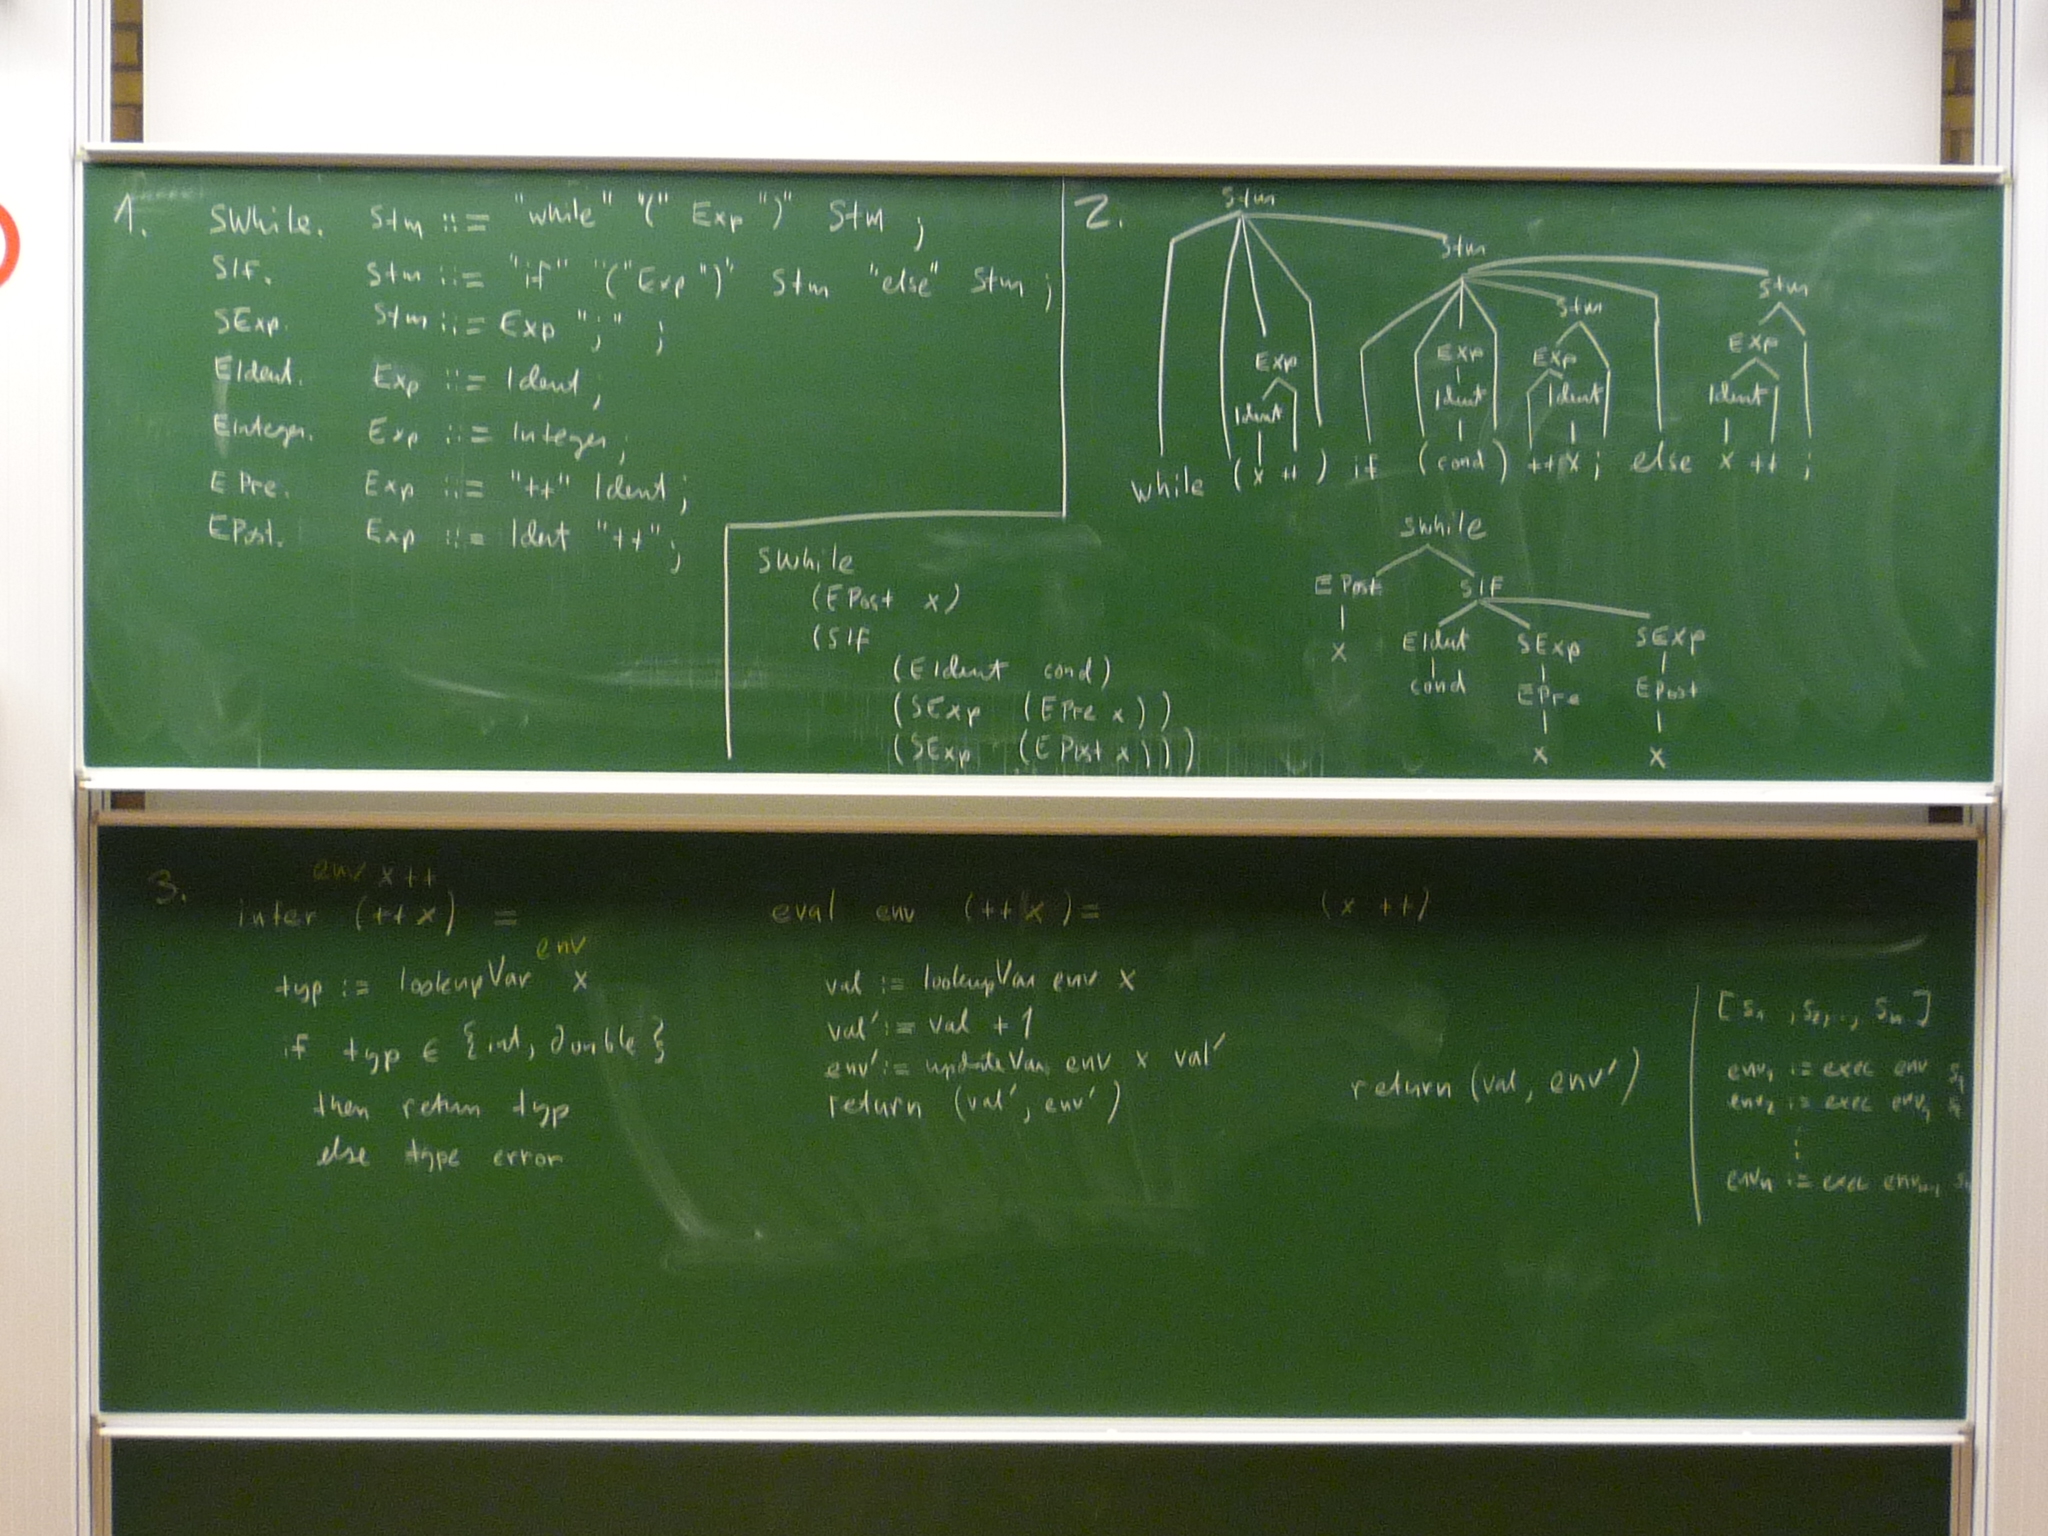 1.
SWhile. Stm ::= "while" "(" Exp ")" Stm ;
SIf. Stm ::= "if" "(" Exp ")" Stm "else" Stm ;
SExp. Stm ::= Exp ";" ;
EIdent. Exp ::= Ident ;
EInteger. Exp ::= Integer ;
EPre. Exp ::= "++" Ident ;
EPost. Exp ::= Ident "++" ;
SWhile
(EPost x)
(SIf
(EIdent cond)
(SExp (EPre x))
(SExp (EPost x)))
2.
Stm
Stm
Stm Stm
Exp Exp Exp Exp
Ident Ident Ident Ident
while (x ++) if (cond) ++ x ; else x ++ ;
SWhile
EPost SIf
x EIdent SExp SExp
cond EPre EPost
x x
3.
env x ++
infer (++ x) =
env
typ := lookupVar x
if typ ∈ {int, double}
then return typ
else type error
eval env (++ x) =
val := lookupVar env x
val' := val + 1
env' := updateVar env x val'
return (val', env')
(x ++)
return (val, env')
[s₁, s₂, .., sₙ]
env₁ := exec env s₁
env₂ := exec env₁ s₂
⋮
envₙ := exec envₙ₋₁ sₙ